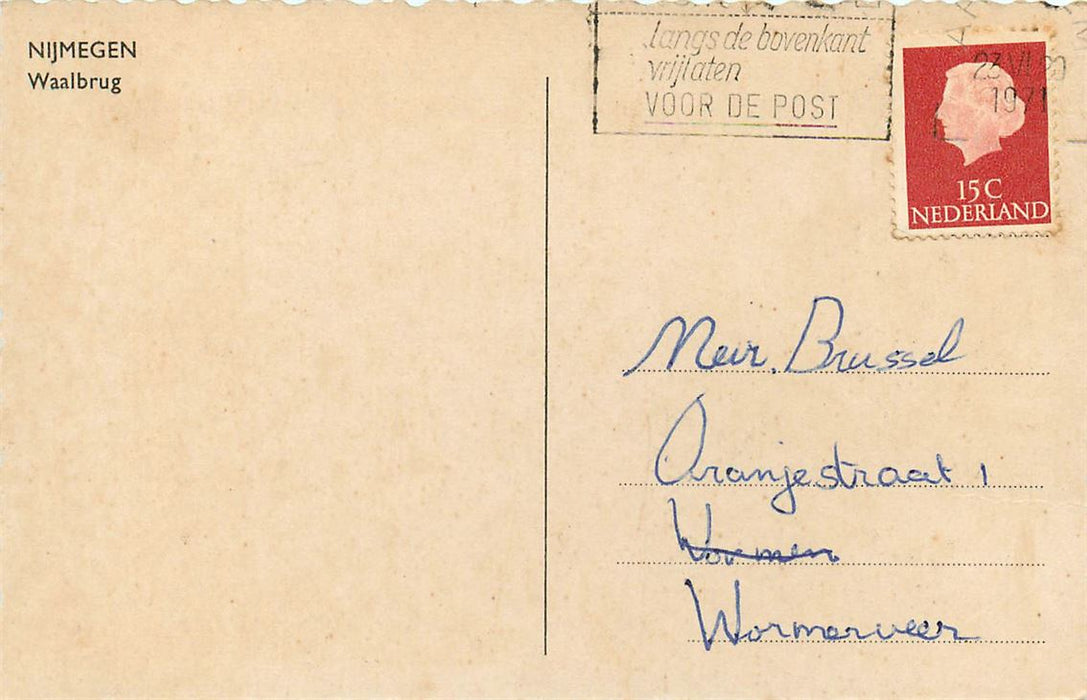 NIJMEGEN
Waalbrug
langs de bovenkant
vrijlaten
VOOR DE POST
1971
15 C
NEDERLAND
Mevr. Brussel
Oranjestraat 1
Wormer
Wormerveer